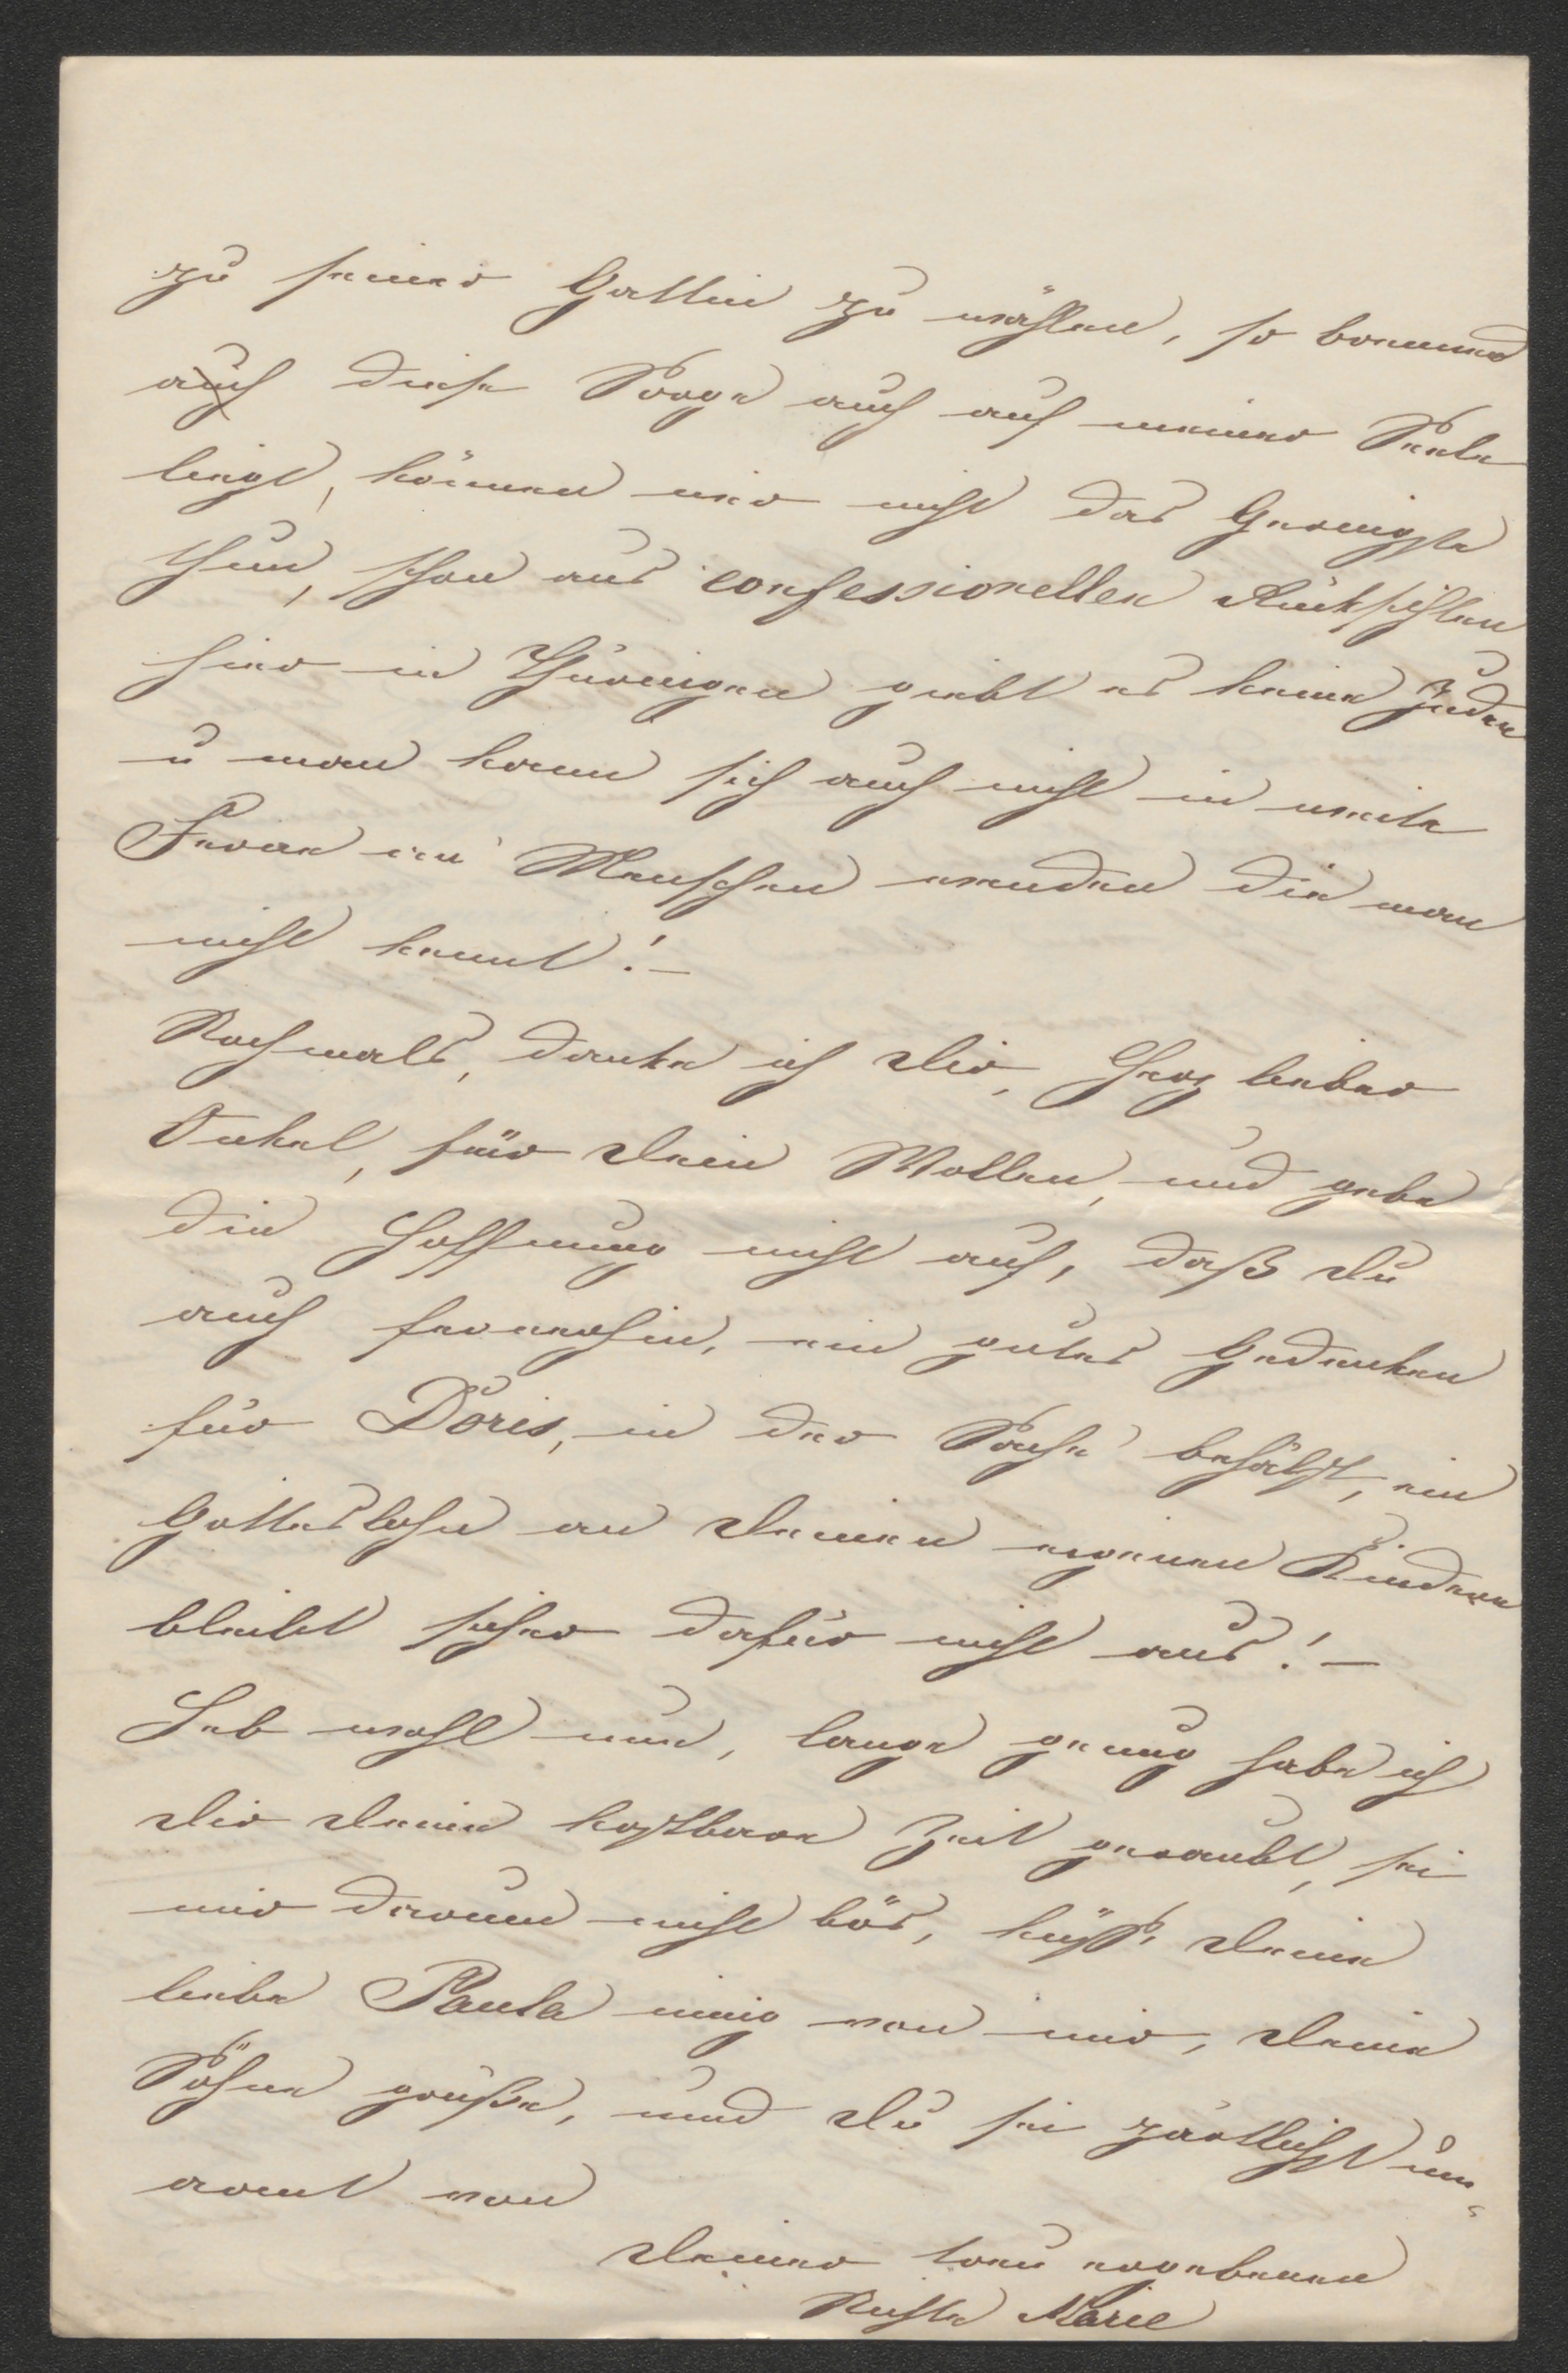 zu seiner Gattin zu wählen, so brennend
auch diese Sorge auch auf meiner Seele
liegt, können wir nicht das Geringste
thun, schon aus confessionellen Rücksichten
hier in Thüringen giebt es keine Juden
u man kann sich auch nicht in weite
Ferne an Menschen wenden die man
nicht kennt! –
Nochmals, danke ich Dir, Herz lieber
Onkel, für Dein Wollen, und gebe
die Hoffnung nicht auf, daß Du
auch fernerhin, ein gutes Gedenken
für Doris, in der Sache behälst, ein
Gotteslohn an Deinen eigenen Kindern
bleibt sicher dafür nicht aus! –
Leb wohl nun, lange genug habe ich
Dir Deine kostbare Zeit geraubt, sei
mir darum nicht bös, küß' Deine
liebe Paula innig von mir, Deine
Söhne grüße, und Du sei zärtlichst um-
armt von
Deiner treu ergebenen
Nichte Marie